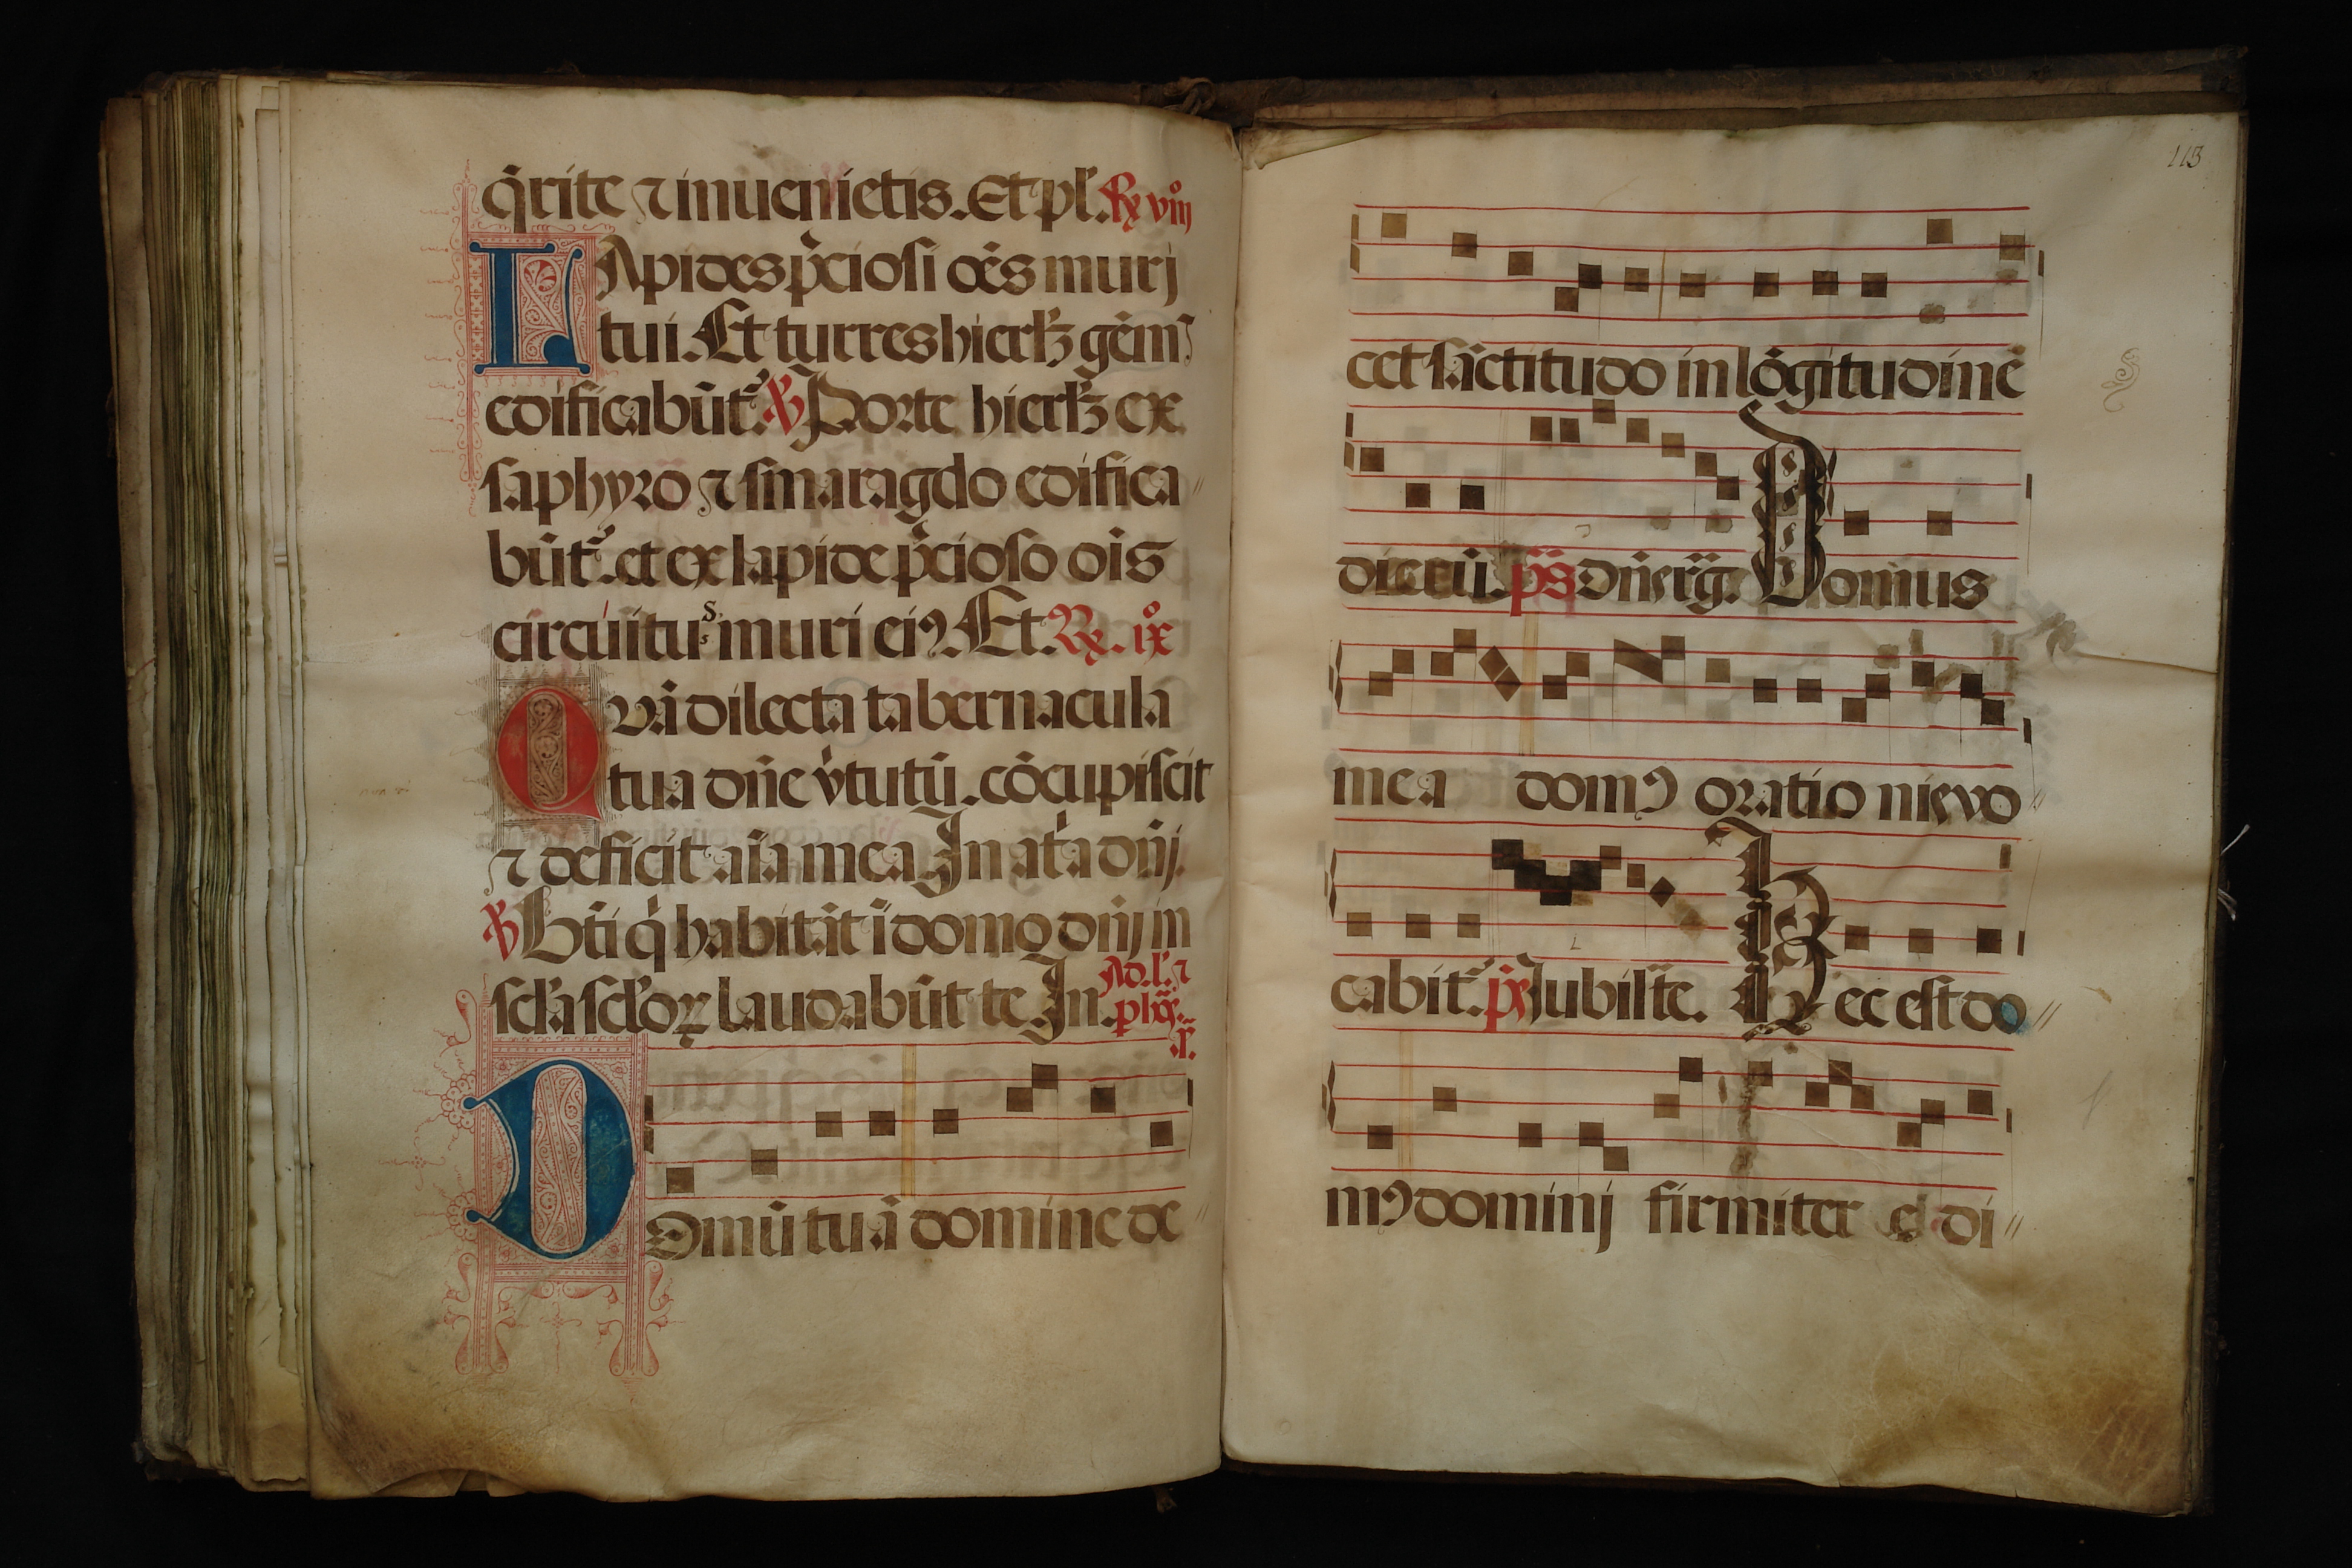 q̃rite ⁊ inuenietis. Et pl̃. R͛ viijº
LApides p̃ciosi oẽs murj
tui. Et turres hierlꝫ gẽmꝰ
edificabũtᷣ. ℣ Porte hierlꝫ ex
saphyro ⁊ smaragdo edifica
bũtᷣ. et ex lapide p̃cioso oĩs
circuitus muri eiꝰ. Et. R͛. ixº
QVã dilecta tabernacula
tua dñe v̓tutũ. cõcupiscit
⁊ deficit aĩa mea In at̓a dñj.
℣ Bt̃i q̓ habitãt ĩ domo dñj in
scl̃a scl̃oꝝ laudabũt te In. Ad. l̓. ⁊
DOmũ tuã domine de
113
cet sãctitudo in lõgitudinẽ
dierũ. p̃s Dñs rg̃. Domus
mea domꝰ orationis vo
cabitᷣ. p̃s Jubil̃te. Hec est do
mꝰ dominj firmiter edi